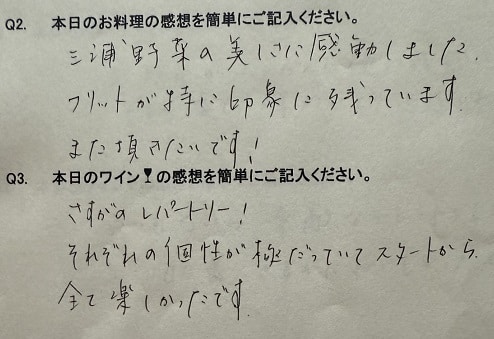 Q2. 本日のお料理の感想を簡単にご記入ください。
三浦野菜の美しさに感動しました。
フリットが特に印象に残っています。
また頂きたいです!
Q3. 本日のワイン🍷の感想を簡単にご記入ください。
さすがのレパートリー!
それぞれの個性が極だっていてスタートから、
全て楽しかったです。